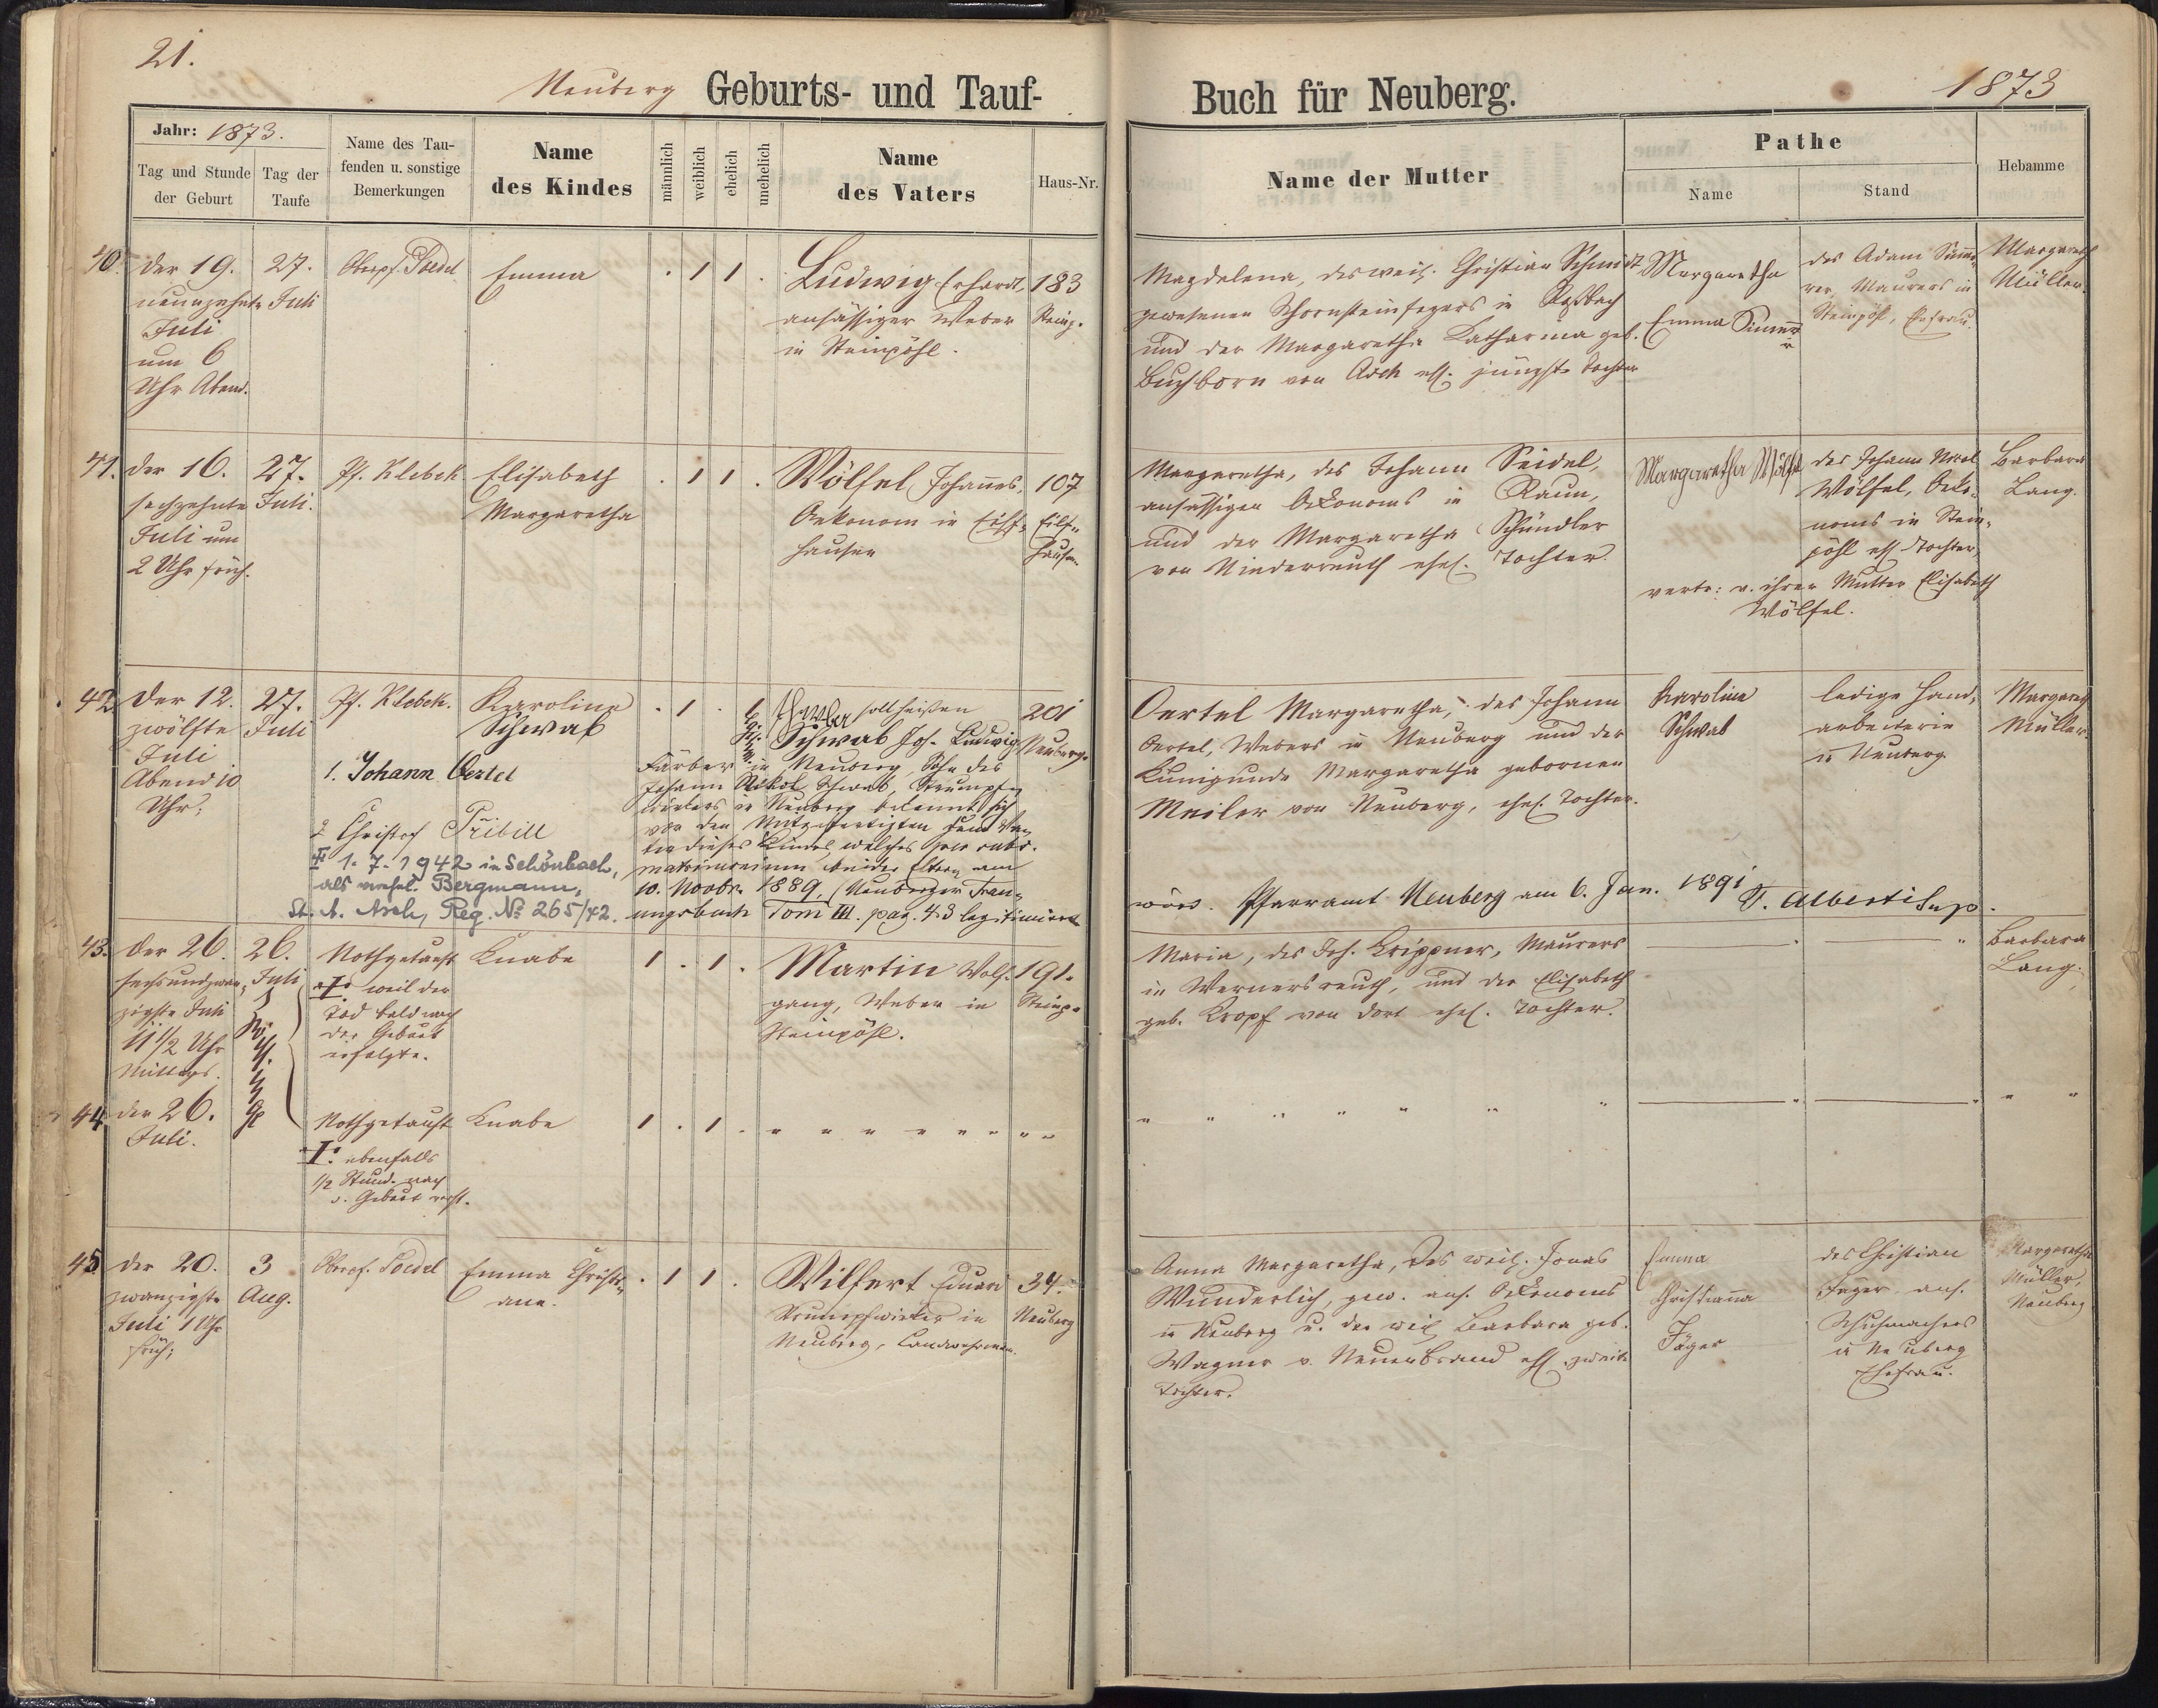 21.
Neuberg Geburts- und Tauf-
Jahr: 1873.
Tag und Stunde
der Geburt
Tag der
Taufe
Name des Tau-
fenden u. sonstige
Bemerkungen
Name
des Kindes
männlich
weiblich
ehelich
unehelich
Name
des Vaters
Haus-Nr.
40. der 19.
neunzehnte
Juli
um 6
Uhr Abend.
27.
Juli
Emma
. 1 1 .
Ludwig Erhardt,
ansässiger Weber
in Steinpöhl.
183
Steinp.
41. der 16.
sechzehnte
Juli um
2 Uhr früh.
27.
Juli.
Pf. Klebek
Elisabeth
Margaretha
. 1 1 .
Wölfel, Johannes,
Oekonom in
hausen
107
Eilf-
hausen
42. der 12.
zwölfte
Juli
Abend 10
Uhr;
27.
Juli
Pf. Klebek.
1. Johann Oertel
2 Christof Pribill
1. 7. 1942 in Schönbach,
als Bergmann,
St. A. Asch, Reg. № 265/42.
Karoline
Schwab
. 1 .
soll heißen
Schwab Joh. Ludwig
Färber in Neuberg, Sohn des
Johann Nikol Schwab, Strumpf-
wirkers in Neuberg bekennt sich
vor den Mitgefertigten
dieses Kindes, welches
matrimonium beider Eltern am
10. Novbr. 1889. (Neuberger Trau-
ungsbuch Tom III. pag. 43 legitimiert
201
Neuberg.
43. der 26.
sechsundzwan-
zigste Juli
11 1/2 Uhr
Mittags.
26.
Juli
Nothgetauft
weil der
Tod bald nach
der Geburt
erfolgte.
Knabe
1 . 1 .
Martin Wolf-
gang, Weber in
Steinpöhl.
191.
Steinp.
44. der 26.
Juli.
Nothgetauft
ebenfalls
1/2 Stund. nach
d. Geburt
Knabe
1 . 1 .
" " " " " " " "
45. der 20.
zwanzigste
Juli 1 Uhr
früh;
3
Aug.
Emma Christi-
ana.
. 1 1 .
Wilfert Eduard
Strumpfwirker in
Neuberg, Landwehrman.
34.
Neuberg
Buch für Neuberg.
1873
Name der Mutter
Pathe
Name
Stand
Hebamme
Magdalena, des weil. Christian Schmidt
gewesenen Schornsteinfegers in Roßbach
und der Margaretha Katharina geb.
Buchborn von Asch ehl. jüngste Tochter
Margaretha
Emma
des Adam
Maurers in
Steinpöhl, Ehefrau.
Margareth
Müller.
Margaretha, des Johann Seidel,
ansässigen Oekonoms in Raun,
und der Margaretha Schündler
von Niederreuth ehel. Tochter.
Margaretha Wölfel
des Johann Nikol
Wölfel, Oeko-
noms in Stein-
pöhl ehl Tochter,
vertr: v. ihrer Mutter Elisabeth
Wölfel.
Barbara
Lang.
Oertel Margaretha, des Johann
Oertel, Webers in Neuberg und der
Kunigunde Margaretha gebornen
Meiler von Neuberg, ehel. Tochter.
Karoline
Schwab
ledige Hand-
arbeiterin
in Neuberg.
Margareth
Müller.
wurd. Pfarramt Neuberg am 6. Jan. 1891 T. Alberti Sup.
Maria, des Joh. Krippner, Maurers
in Wernersreuth, und der Elisabeth
geb. Kropf von dort ehel. Tochter.
Barbara
Lang.
" " " " " " " " "
Anna Margaretha, des weil. Jonas
Wunderlich, gew. ans. Oekonoms
in Neuberg u. der weil Barbara geb.
Wagner v. Neuenbrand ehl. zweite
Tochter.
Emma
Christianna
Jäger
des Christian
Jäger ans.
Schuhmachers
in Neuberg
Ehefrau.
Margaretha
Müller,
Neuberg